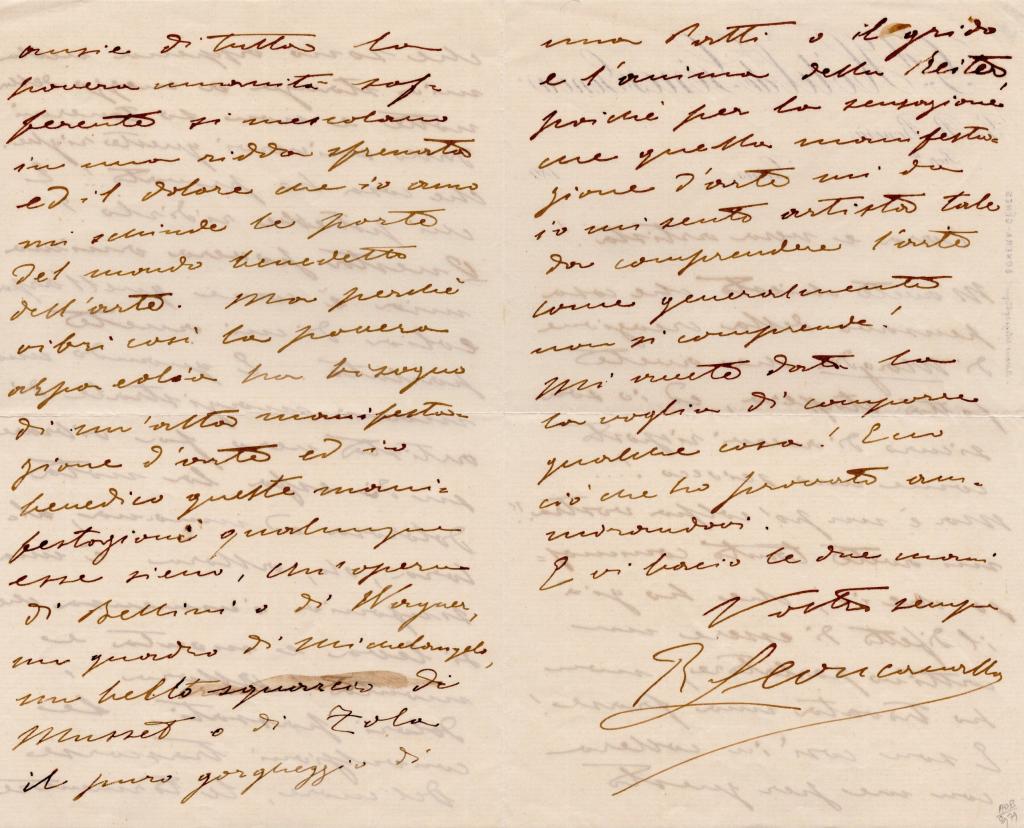 ansie di tutta la
povera umanità sof=
ferente si mescolano
in una ridda sfrenata
ed il dolore che io amo
mi schiude le porte
del mondo benedetto
dell'arte. Ma perchè
vibri così la povera
arpa eolia ha bisogno
di un'alta manifesta=
zione d'arte ed io
benedico queste mani=
festazioni qualunque
esse sieno, Un'opera
di Bellini o di Wagner,
un quadro di Michelangelo,
un bello squarcio di
Musset o di Zola
il puro gorgheggio di
una Patti o il grido
e l'anima della Reiter
poichè per la sensazione
che questa manifesta=
zione d'arte mi da
io mi sento artista tale
da comprendere l'arte
come generalmente
non si comprende!
Mi avete data la
la voglia di comporre
qualche cosa! Ecco
ciò che ho provato am=
mirandovi.
E vi bacio le due mani
Vostro sempre
R Leoncavallo